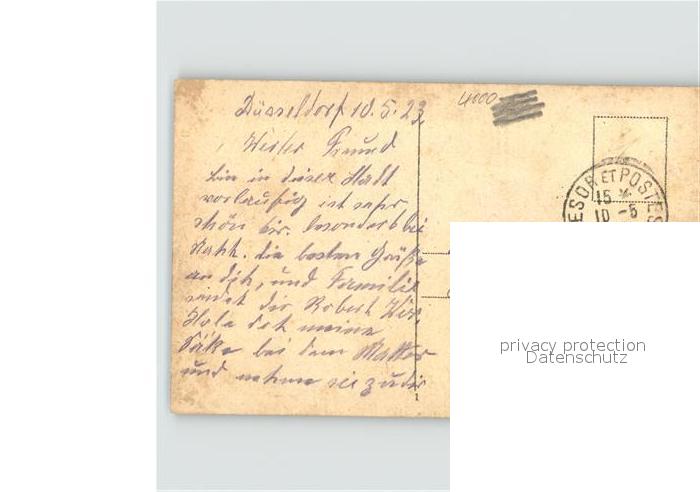 Düsseldorf 10.5.23
4000
Werter Freund
bin in dieser Stadt
vorläufig ist sehr
schön hir. besonders bei
Nacht. die besten Grüße
an dich, und Familie
sendet dir Robert
Hole doch meine
bei dem
und nehme sie zu dir
1
TRESOR ET POSTES
15 *
10 -5
privacy protection
Datenschutz